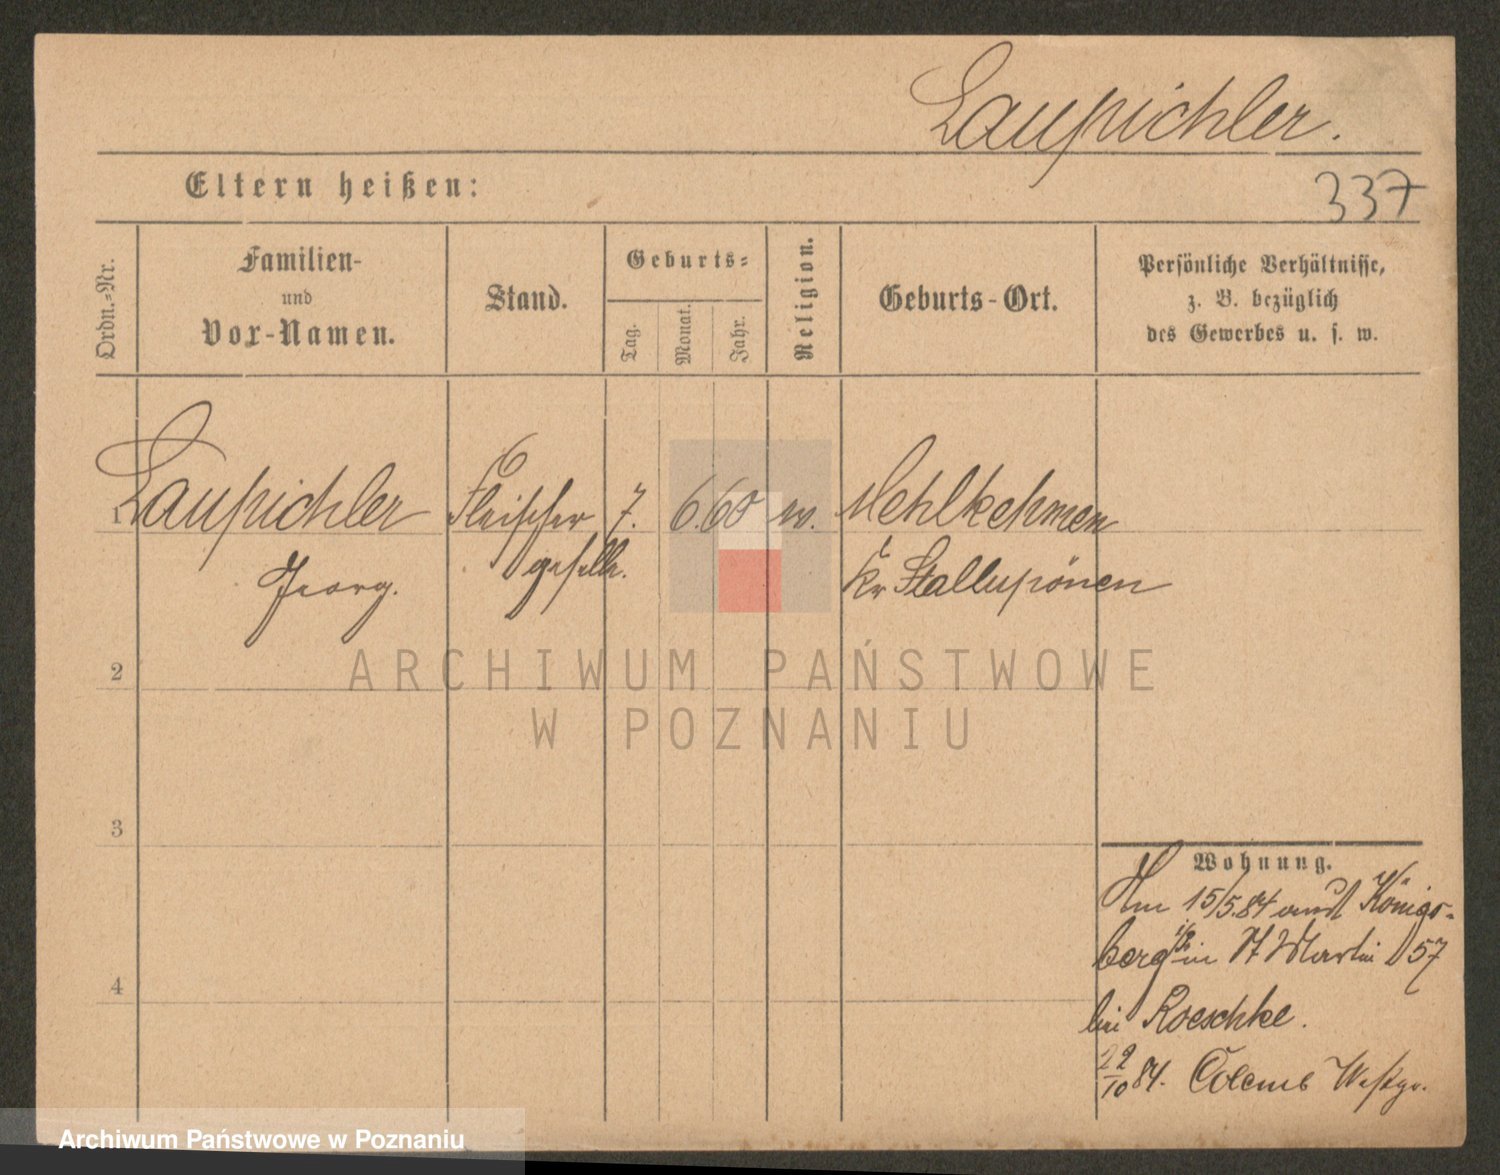 Laupichler.
Eltern heißen:
337
Ordn.-Nr.
Familien-
und
Vor-Namen.
Stand.
Geburts-
Tag.
Monat.
Jahr.
Religion.
Geburts-Ort.
Persönliche Verhältnisse,
z. B. bezüglich
des Gewerbes u. s. w.
1 Laupichler Fleischer 7. 6. 60 Mehlkehmen
Georg. geselle. Kr Stallupönen
2
ARCHIWUM PAŃSTWOWE
W POZNANIU
3
Wohnung.
Am 15/5.84 aus Königs-
berg in St Martin 57
4
bei Roeschke.
22/10 84.
Archiwum Państwowe w Poznaniu